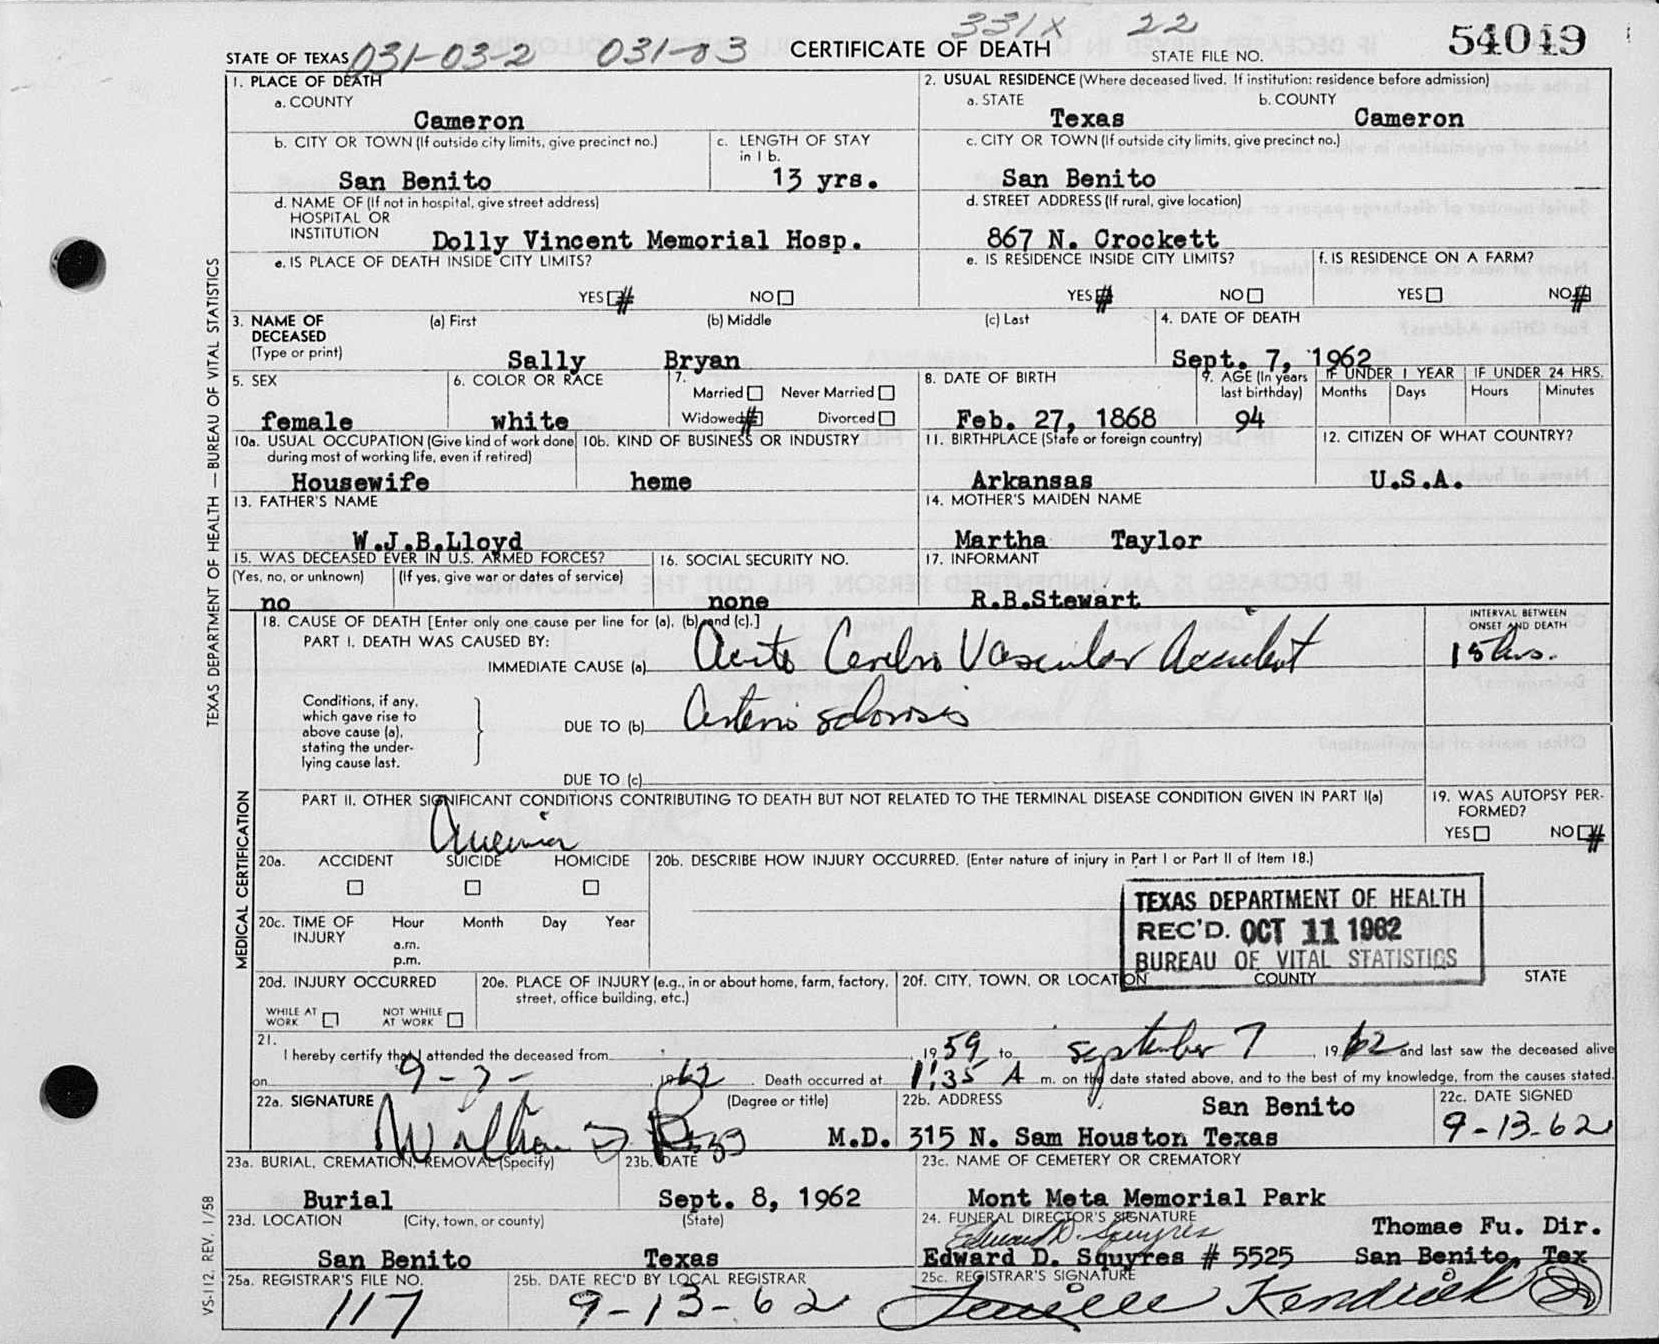 331X 22
STATE OF TEXAS 031-03-2 031-03 CERTIFICATE OF DEATH STATE FILE NO. 54049
1. PLACE OF DEATH
a. COUNTY
Cameron
2. USUAL RESIDENCE (Where deceased lived. If institution: residence before admission)
a. STATE b. COUNTY
Texas Cameron
b. CITY OR TOWN (If outside city limits, give precinct no.)
San Benito
c. LENGTH OF STAY
in 1 b.
13 yrs.
c. CITY OR TOWN (If outside city limits, give precinct no.)
San Benito
d. NAME OF (If not in hospital, give street address)
HOSPITAL OR
INSTITUTION Dolly Vincent Memorial Hosp.
d. STREET ADDRESS (If rural, give location)
867 N. Crockett
e. IS PLACE OF DEATH INSIDE CITY LIMITS?
YES # NO
e. IS RESIDENCE INSIDE CITY LIMITS?
YES # NO
f. IS RESIDENCE ON A FARM?
YES NO #
3. NAME OF
DECEASED
(Type or print)
(a) First (b) Middle (c) Last
Sally Bryan
4. DATE OF DEATH
Sept. 7, 1962
5. SEX
female
6. COLOR OR RACE
white
7.
Married Never Married
Widowed # Divorced
8. DATE OF BIRTH
Feb. 27, 1868
9. AGE (In years
last birthday)
94
IF UNDER 1 YEAR
Months Days
IF UNDER 24 HRS.
Hours Minutes
10a. USUAL OCCUPATION (Give kind of work done
during most of working life, even if retired)
Housewife
10b. KIND OF BUSINESS OR INDUSTRY
heme
11. BIRTHPLACE (State or foreign country)
Arkansas
12. CITIZEN OF WHAT COUNTRY?
U.S.A.
13. FATHER'S NAME
W.J.B.Lloyd
14. MOTHER'S MAIDEN NAME
Martha Taylor
15. WAS DECEASED EVER IN U.S. ARMED FORCES?
(Yes, no, or unknown) (If yes, give war or dates of service)
no
16. SOCIAL SECURITY NO.
none
17. INFORMANT
R.B.Stewart
18. CAUSE OF DEATH [Enter only one cause per line for (a), (b), and (c).]
PART I. DEATH WAS CAUSED BY:
IMMEDIATE CAUSE (a) Acute Cerebro Vascular Accident
INTERVAL BETWEEN
ONSET AND DEATH
15 hrs.
Conditions, if any,
which gave rise to
above cause (a),
stating the under-
lying cause last.
DUE TO (b) Arterio sclorosis
DUE TO (c)
PART II. OTHER SIGNIFICANT CONDITIONS CONTRIBUTING TO DEATH BUT NOT RELATED TO THE TERMINAL DISEASE CONDITION GIVEN IN PART I(a)
Anemia
19. WAS AUTOPSY PER-
FORMED?
YES NO #
20a. ACCIDENT SUICIDE HOMICIDE
20b. DESCRIBE HOW INJURY OCCURRED. (Enter nature of injury in Part I or Part II of Item 18.)
20c. TIME OF
INJURY
Hour Month Day Year
a.m.
p.m.
TEXAS DEPARTMENT OF HEALTH
REC'D. OCT 11 1962
BUREAU OF VITAL STATISTICS
20d. INJURY OCCURRED
WHILE AT
WORK
NOT WHILE
AT WORK
20e. PLACE OF INJURY (e.g., in or about home, farm, factory,
street, office building, etc.)
20f. CITY, TOWN, OR LOCATION COUNTY STATE
21.
I hereby certify that I attended the deceased from , 1959 to September 7, 1962 and last saw the deceased alive
on 9-7-, 1962. Death occurred at 1:35 A m. on the date stated above, and to the best of my knowledge, from the causes stated.
22a. SIGNATURE (Degree or title)
M.D.
22b. ADDRESS San Benito
315 N. Sam Houston Texas
22c. DATE SIGNED
9-13-62
23a. BURIAL, CREMATION, REMOVAL (Specify)
Burial
23b. DATE
Sept. 8, 1962
23c. NAME OF CEMETERY OR CREMATORY
Mont Meta Memorial Park
23d. LOCATION (City, town, or county) (State)
San Benito Texas
24. FUNERAL DIRECTOR'S SIGNATURE
Edward D. Squyres Thomae Fu. Dir.
Edward D. Squyres # 5525 San Benito, Tex
25a. REGISTRAR'S FILE NO.
117
25b. DATE REC'D BY LOCAL REGISTRAR
9-13-62
25c. REGISTRAR'S SIGNATURE
Kendrick
TEXAS DEPARTMENT OF HEALTH — BUREAU OF VITAL STATISTICS
MEDICAL CERTIFICATION
VS-112, REV. 1/58